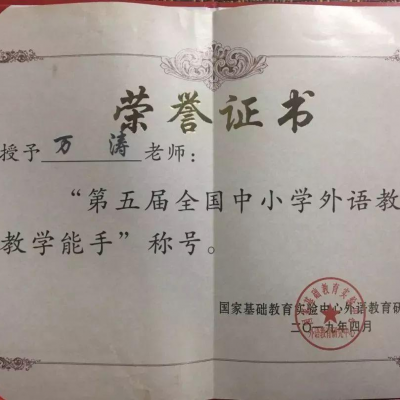 荣誉证书
授予 万 涛 老师：
“第五届全国中小学外语教
教学能手”称号。
国家基础教育实验中心外语教育研
二〇一九年四月